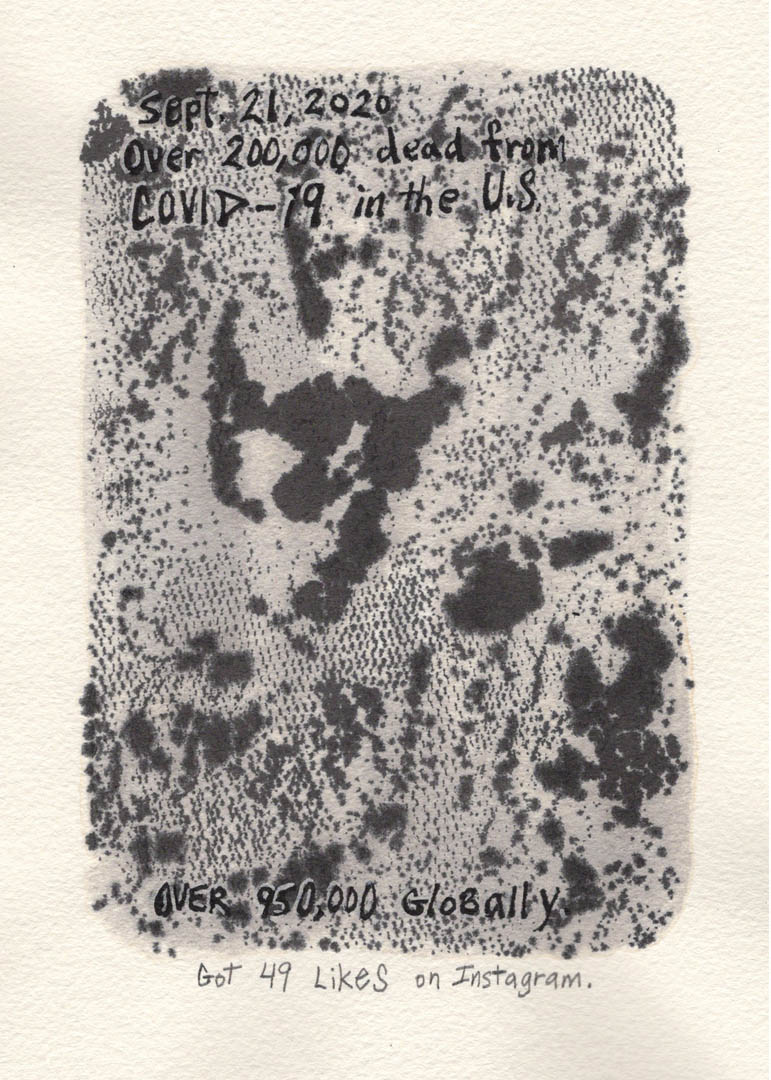 Sept. 21, 2020
Over 200,000 dead from
COVID-19 in the U.S.
OVER 950,000 Globally.
Got 49 Likes on Instagram.